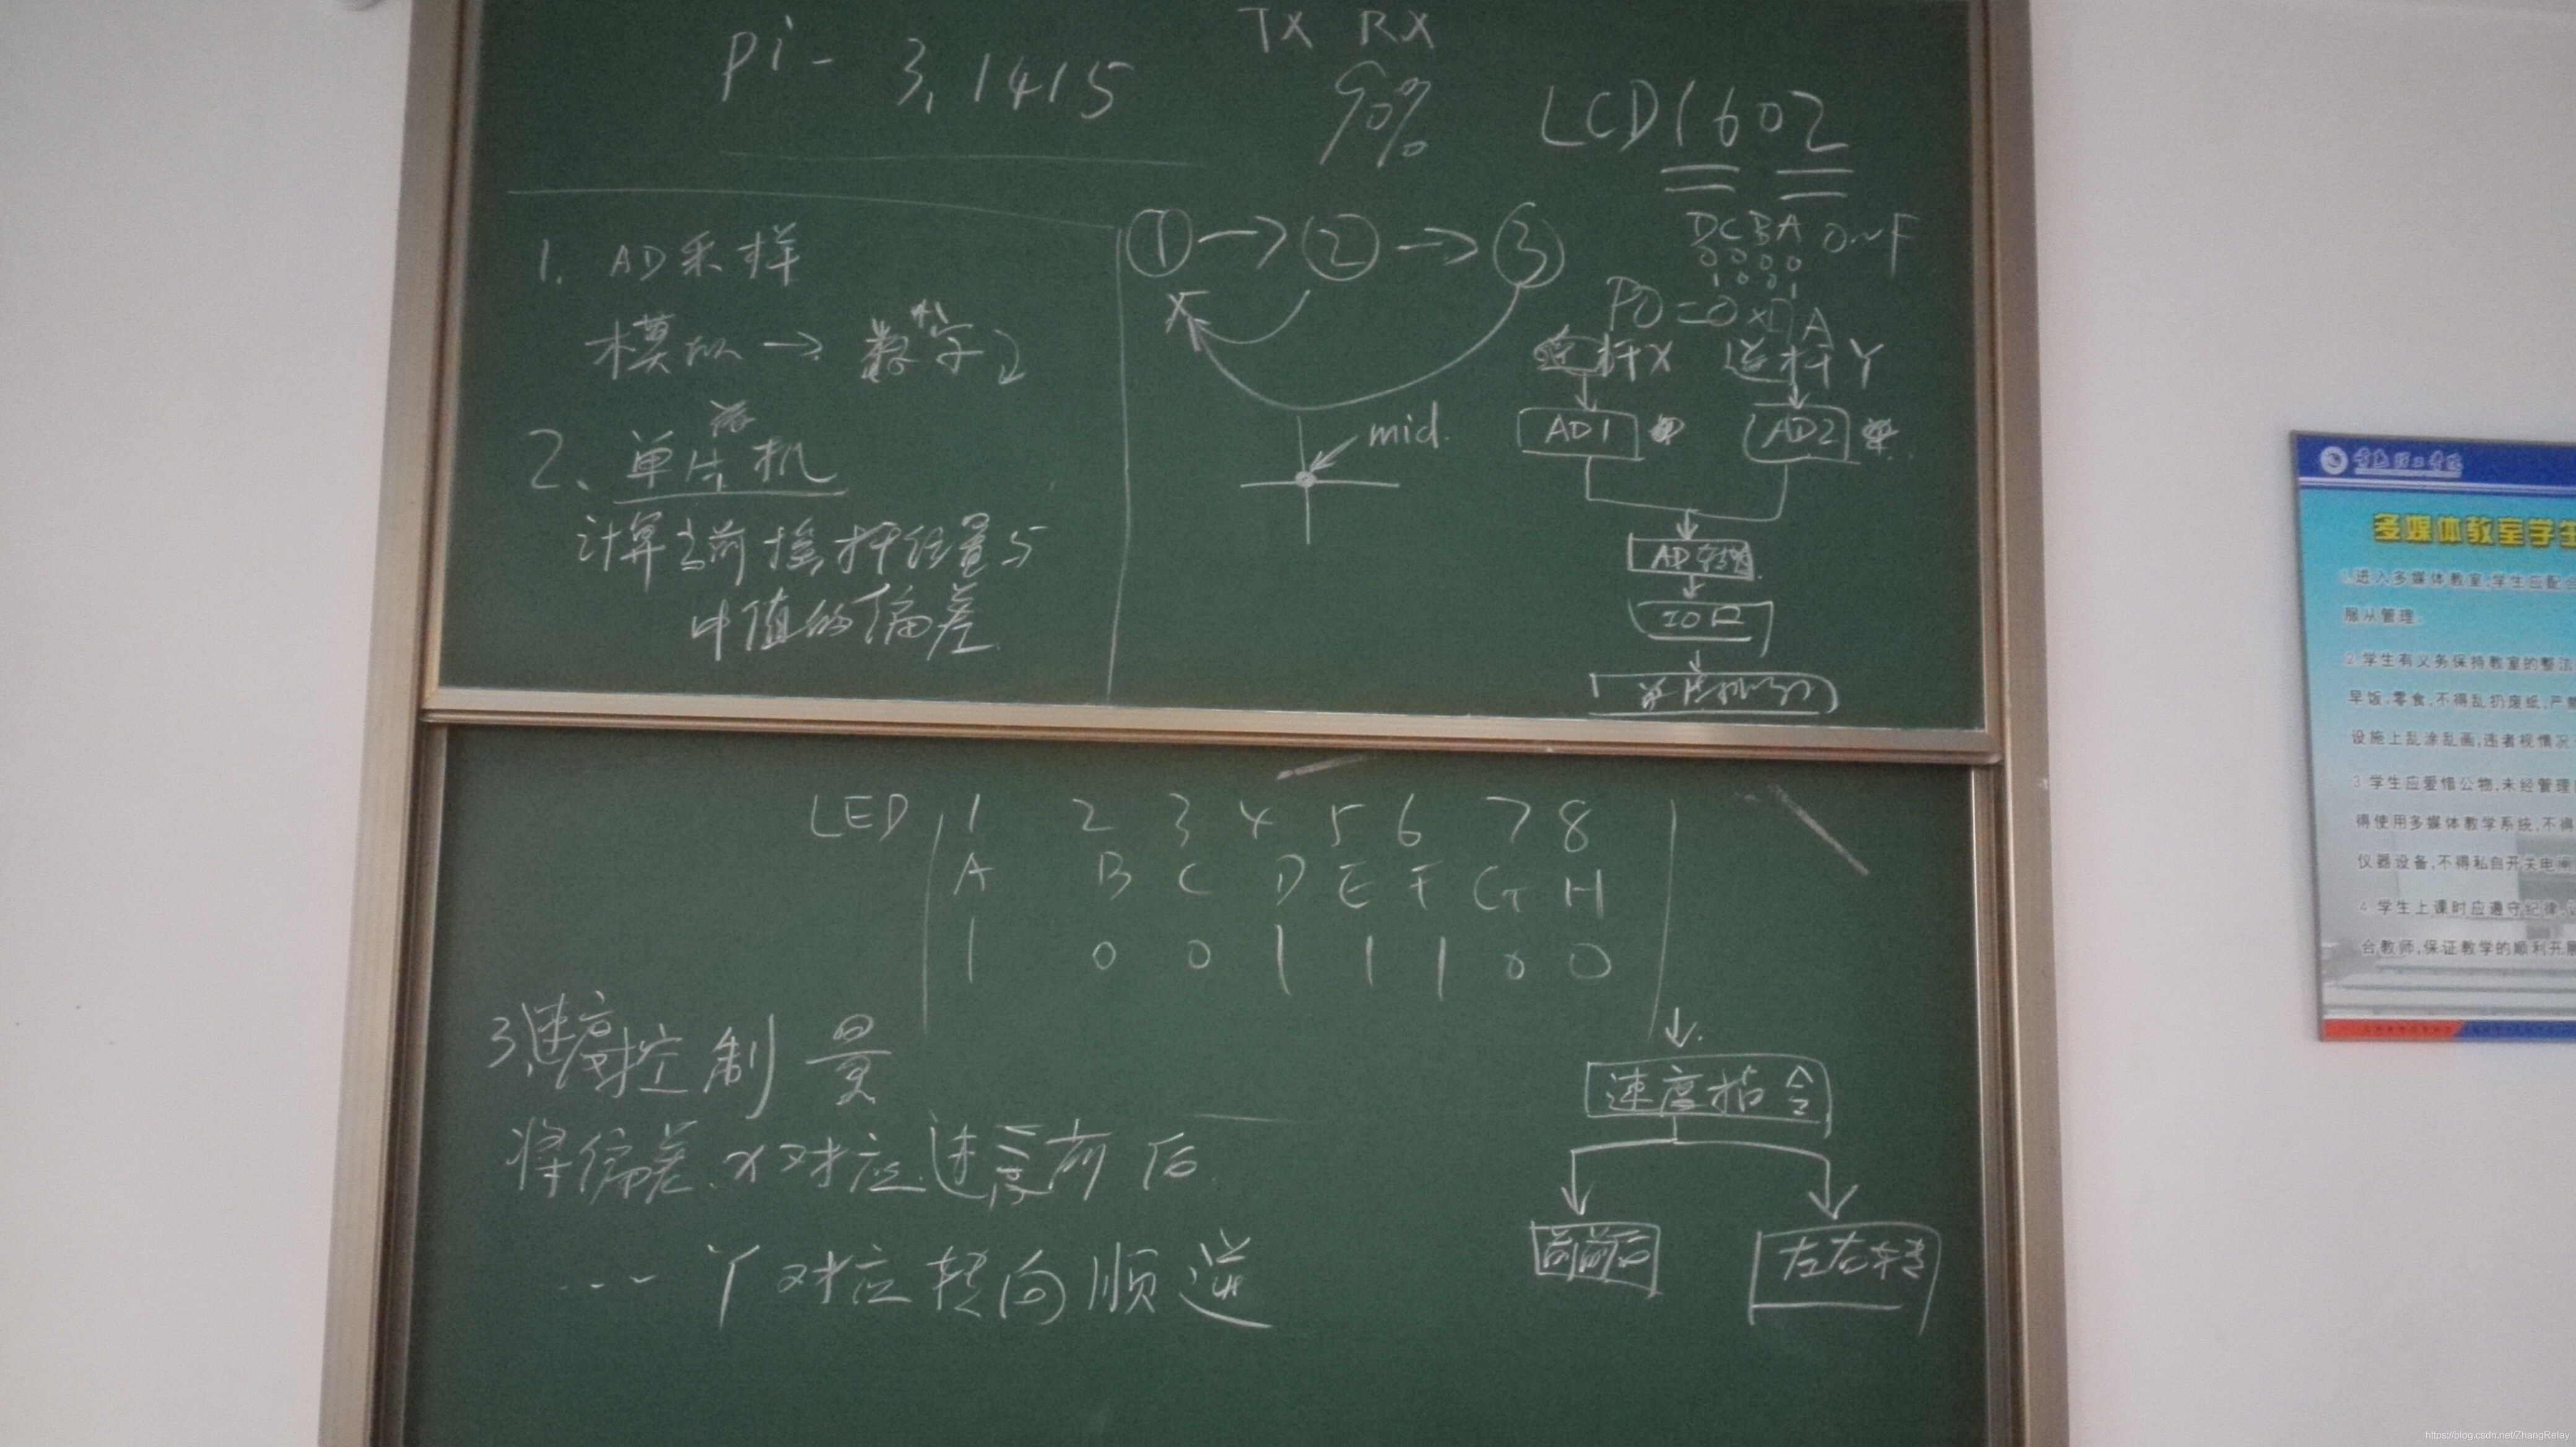 pi - 3.1415
TX RX
90%
LCD1602
DCBA 0~F
0000
1001
P0=0x A
1. AD采样
模拟 → 数字
2、单片机
计算当前摇杆位置与
中值的偏差
① → ② → ③
X
mid.
杆X
杆Y
AD1
AD2
AD转换
IO口
单片机
LED 1 2 3 4 5 6 7 8
A B C D E F G H
1 0 0 1 1 1 0 0
3、速度控制量
将偏差x对应速度前后
--- Y对应转向顺逆
速度指令
前后
左右转
多媒体教室学生
1.进入多媒体教室,学生应配合
服从管理。
2.学生有义务保持教室的整洁
早饭,零食,不得乱扔废纸,严禁
设施上乱涂乱画,违者视情况
3.学生应爱惜公物,未经管理
得使用多媒体教学系统,不得
仪器设备,不得私自开关电
4.学生上课时应遵守纪律
合教师,保证教学的顺利开展
https://blog.csdn.net/ZhangRelay